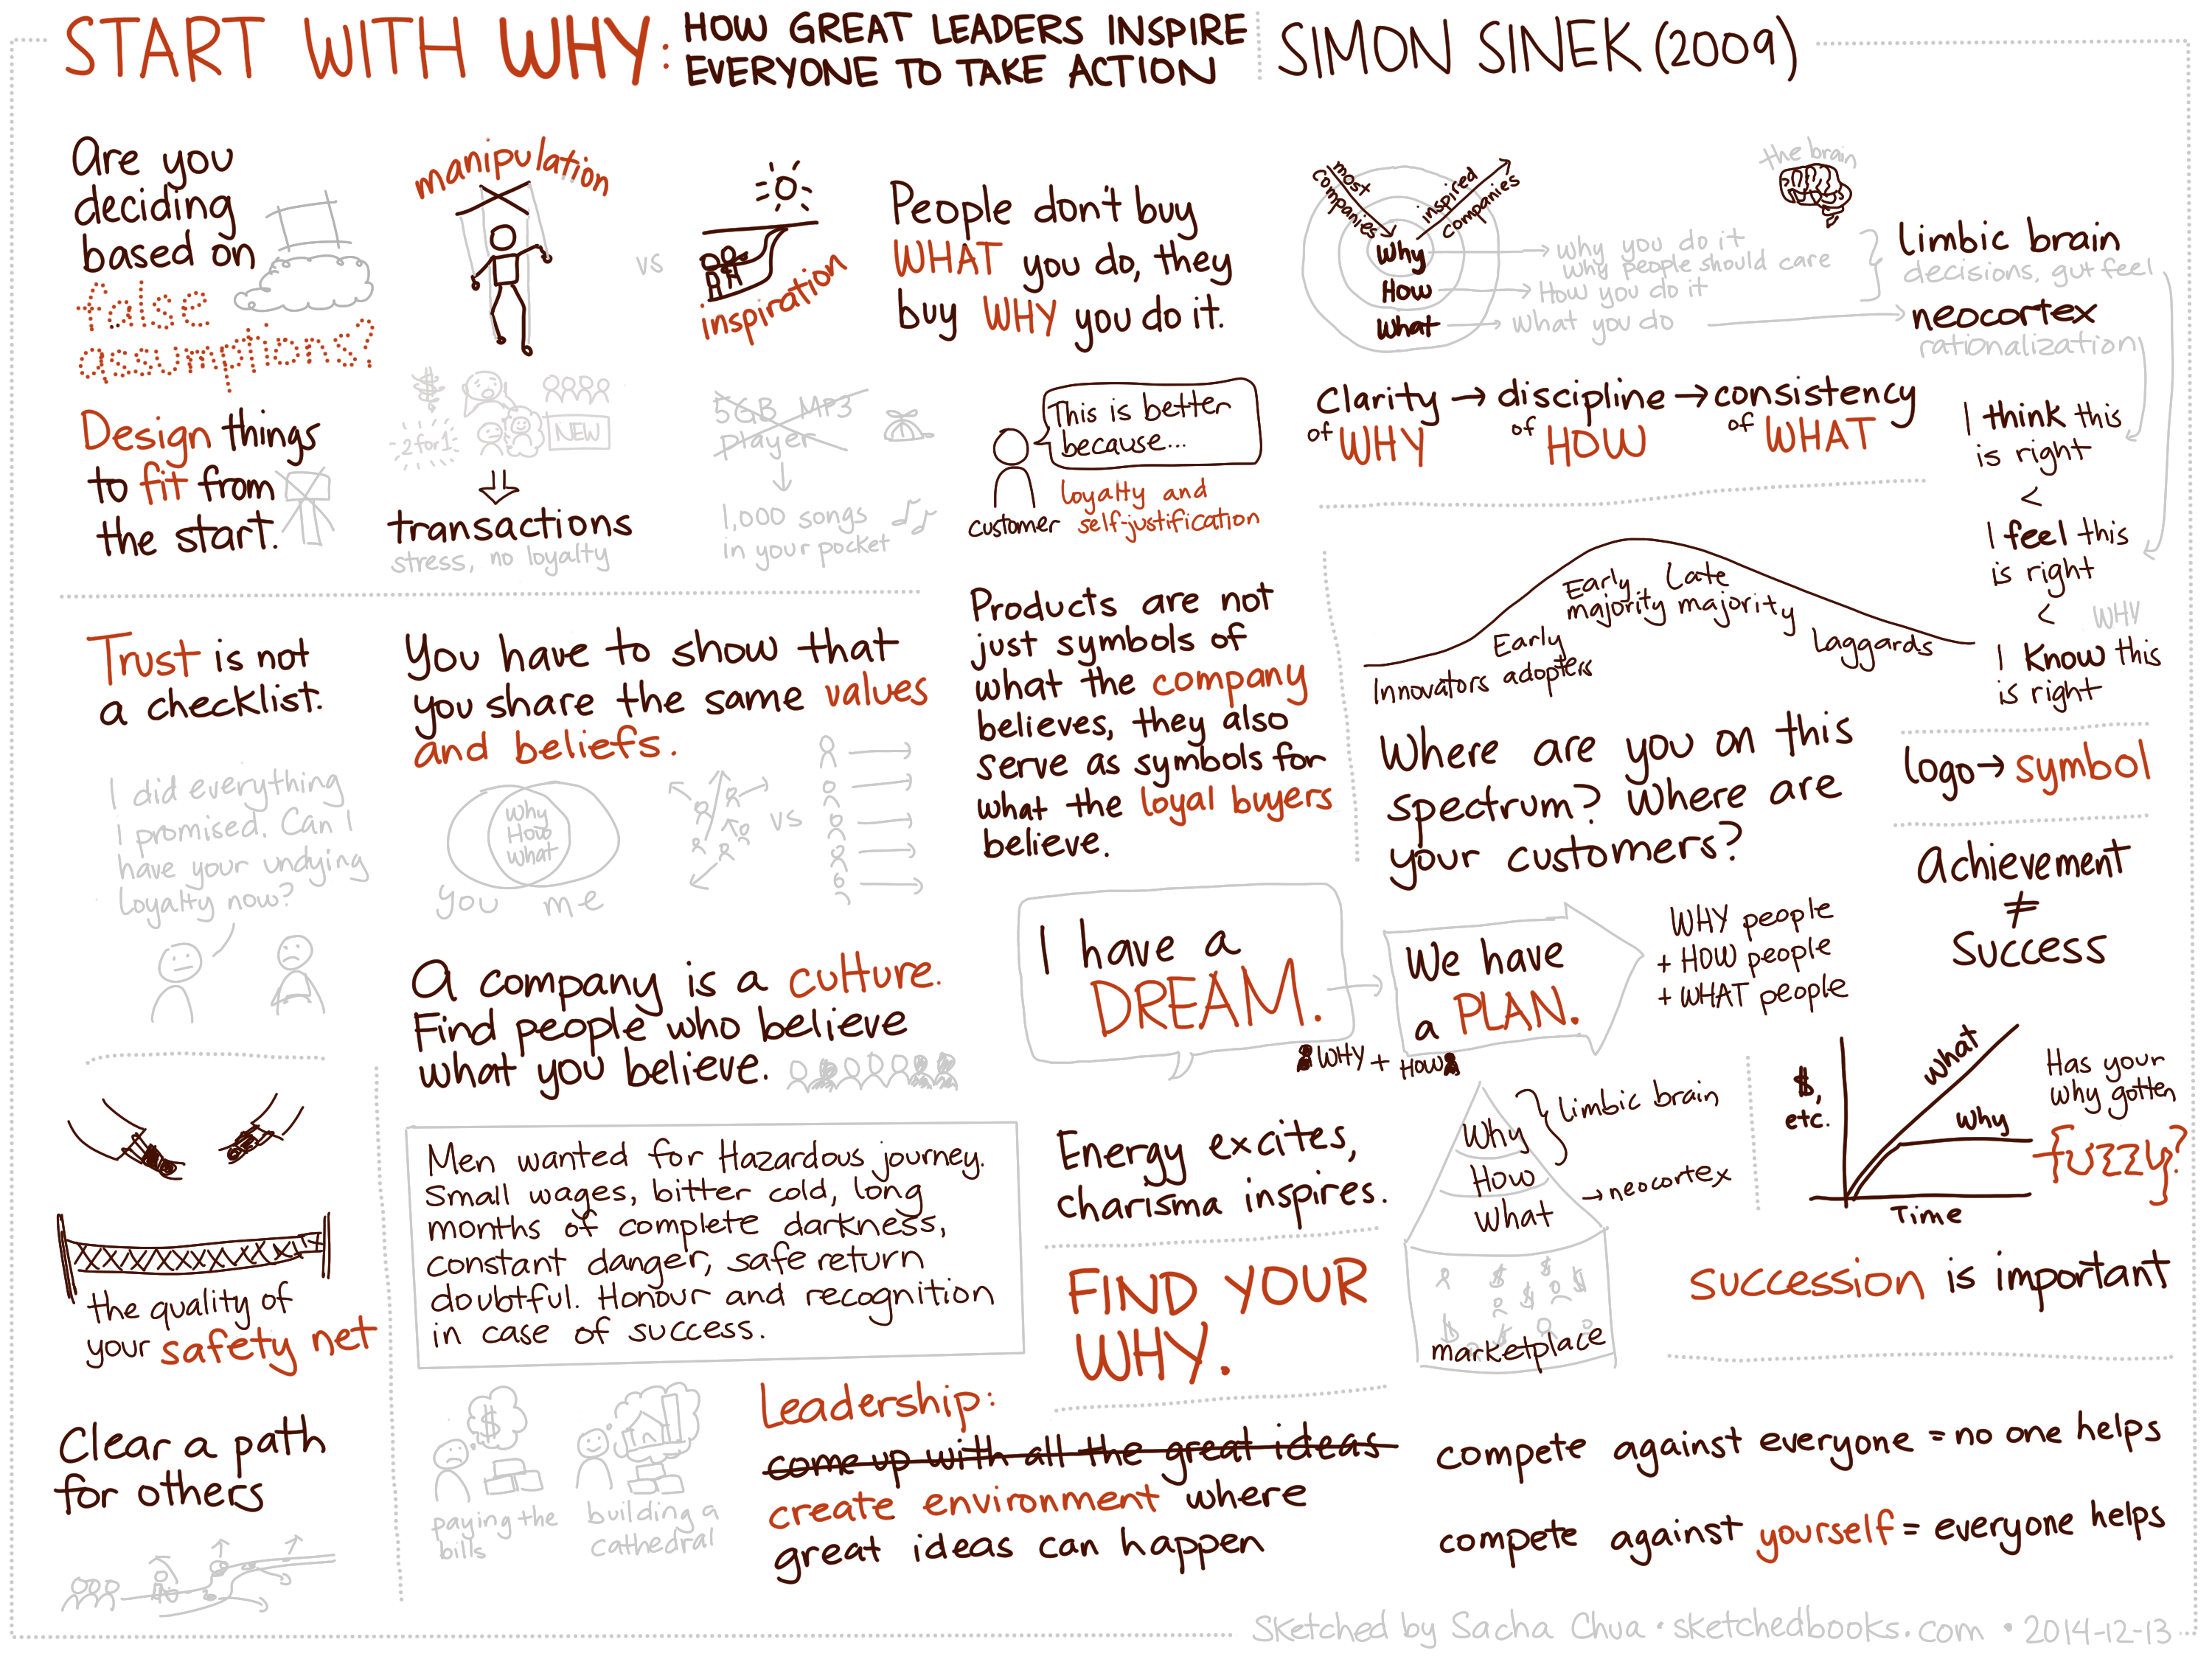 START WITH WHY:
HOW GREAT LEADERS INSPIRE
EVERYONE TO TAKE ACTION
SIMON SINEK (2009)
Are you
deciding
based on
false
assumptions?
Design things
to fit from
the start.
manipulation
vs
inspiration
$
2 for 1
NEW
transactions
stress, no loyalty
5GB MP3
player
1,000 songs
in your pocket
People don't buy
WHAT you do, they
buy WHY you do it.
This is better
because...
customer
loyalty and
self-justification
most
companies
inspired
companies
Why
How
What
why you do it
why people should care
How you do it
What you do
the brain
limbic brain
decisions, gut feel
neocortex
rationalization
Clarity → discipline → consistency
of WHY of HOW of WHAT
I think this
is right
<
I feel this
is right
<
WHY
I know this
is right
Trust is not
a checklist.
I did everything
I promised. Can I
have your undying
loyalty now?
You have to show that
you share the same values
and beliefs.
Why
How
What
you me
vs
A company is a culture.
Find people who believe
what you believe.
Products are not
just symbols of
what the company
believes, they also
serve as symbols for
what the loyal buyers
believe.
Innovators
Early
adopters
Early
majority
Late
majority
Laggards
Where are you on this
spectrum? Where are
your customers?
logo → symbol
achievement
≠
success
I have a
DREAM.
We have
a PLAN.
WHY + HOW
WHY people
+ HOW people
+ WHAT people
the quality of
your safety net
Men wanted for Hazardous journey.
Small wages, bitter cold, long
months of complete darkness,
constant danger, safe return
doubtful. Honour and recognition
in case of success.
Energy excites,
charisma inspires.
FIND YOUR
WHY.
Why
How
What
limbic brain
→ neocortex
marketplace
$,
etc.
What
Why
Time
Has your
why gotten
fuzzy?
succession is important
Clear a path
for others
$
paying the
bills
building a
cathedral
Leadership:
come up with all the great ideas
create environment where
great ideas can happen
compete against everyone = no one helps
compete against yourself = everyone helps
Sketched by Sacha Chua · sketchedbooks.com · 2014-12-13